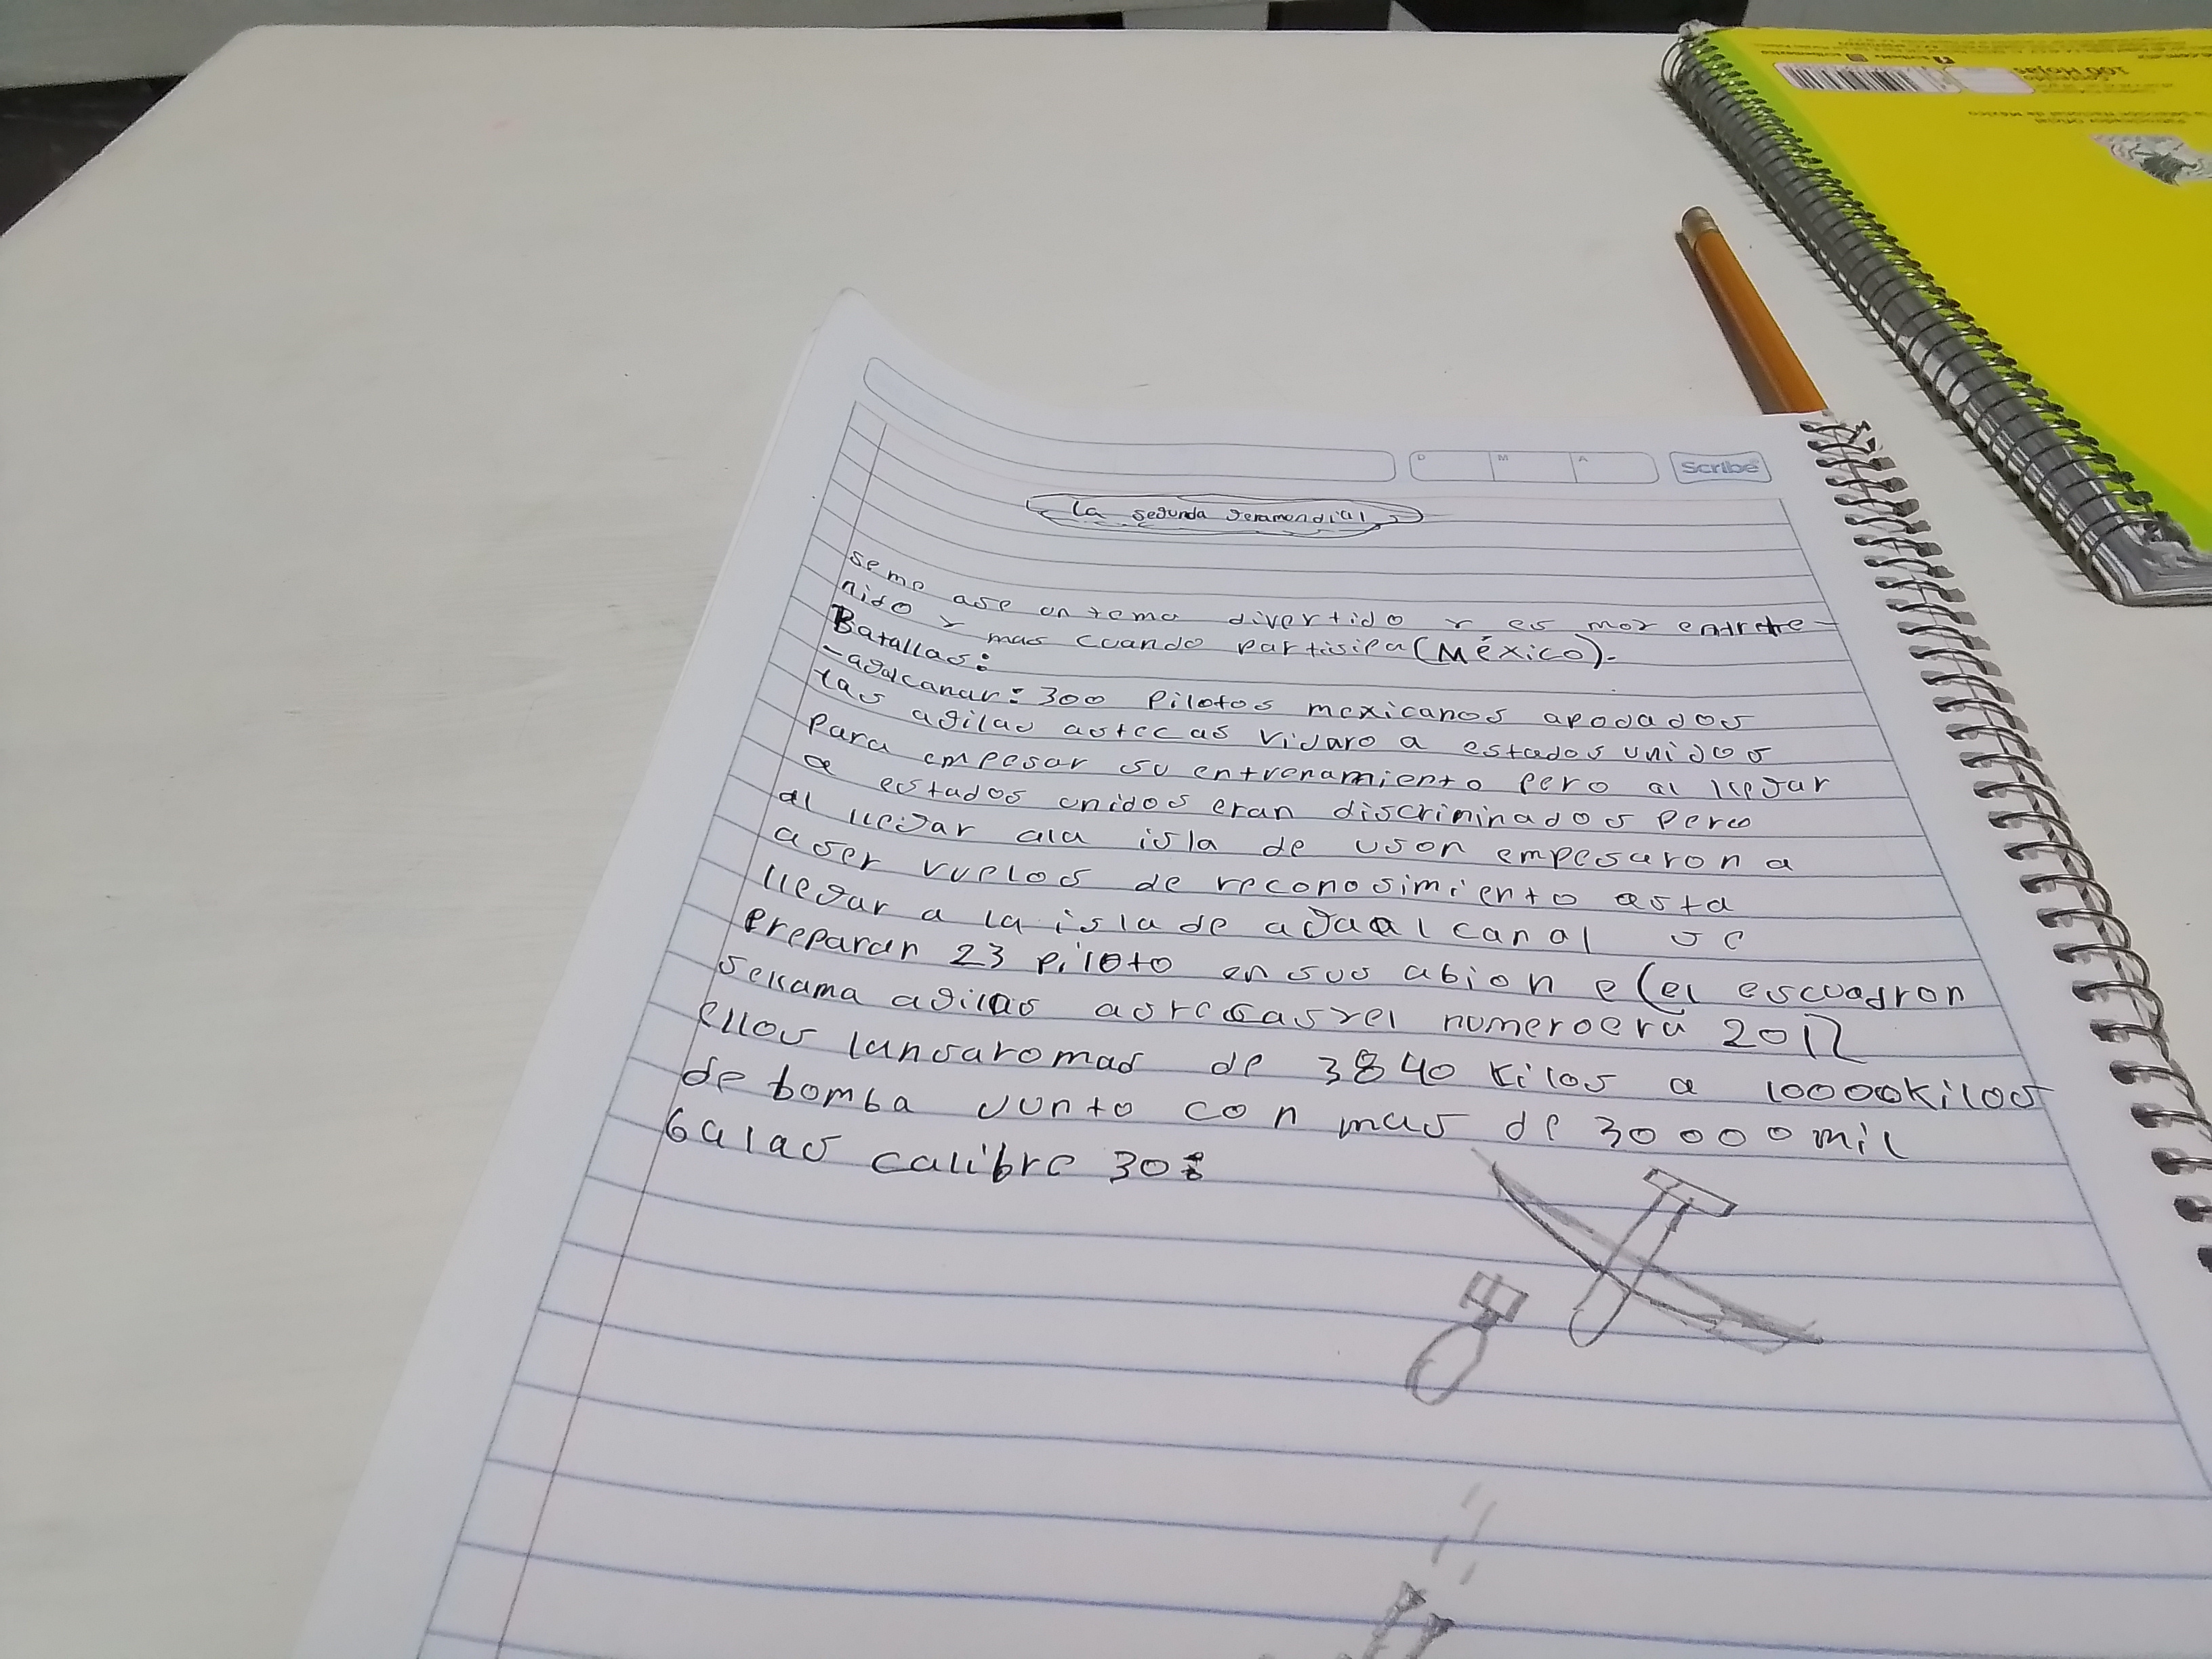 100 Hojas
D M A
Scribe
La segunda geramondial
se me ase un tema divertido y es moy entrete-
nido y mas cuando partisipa (México).
Batallas:
-agalcanar: 300 Pilotos mexicanos apodados
las agilas astecas viJaro a estados unidos
Para empesar su entrenamiento pero al llegar
a estados unidos eran discriminados pero
al llegar ala isla de uson empesaron a
aser vuelos de reconosimiento asta
llegar a la isla de agaalcanal se
Preparan 23 piloto en sus abion e (el escuadron
sellama agilas astecas yel numeroera 201)
ellos lansaromas de 3840 kilos a 10000kilos
de bomba junto con mas de 30000mil
balas calibre 30: